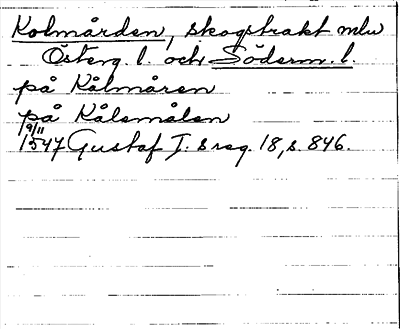 Kolmården, skogstrakt mlw
Österg. l. och Söderm. l.
på Kålmåren
på Kålsmålen
9/11
1547 Gustaf I:s reg. 18, s. 846.